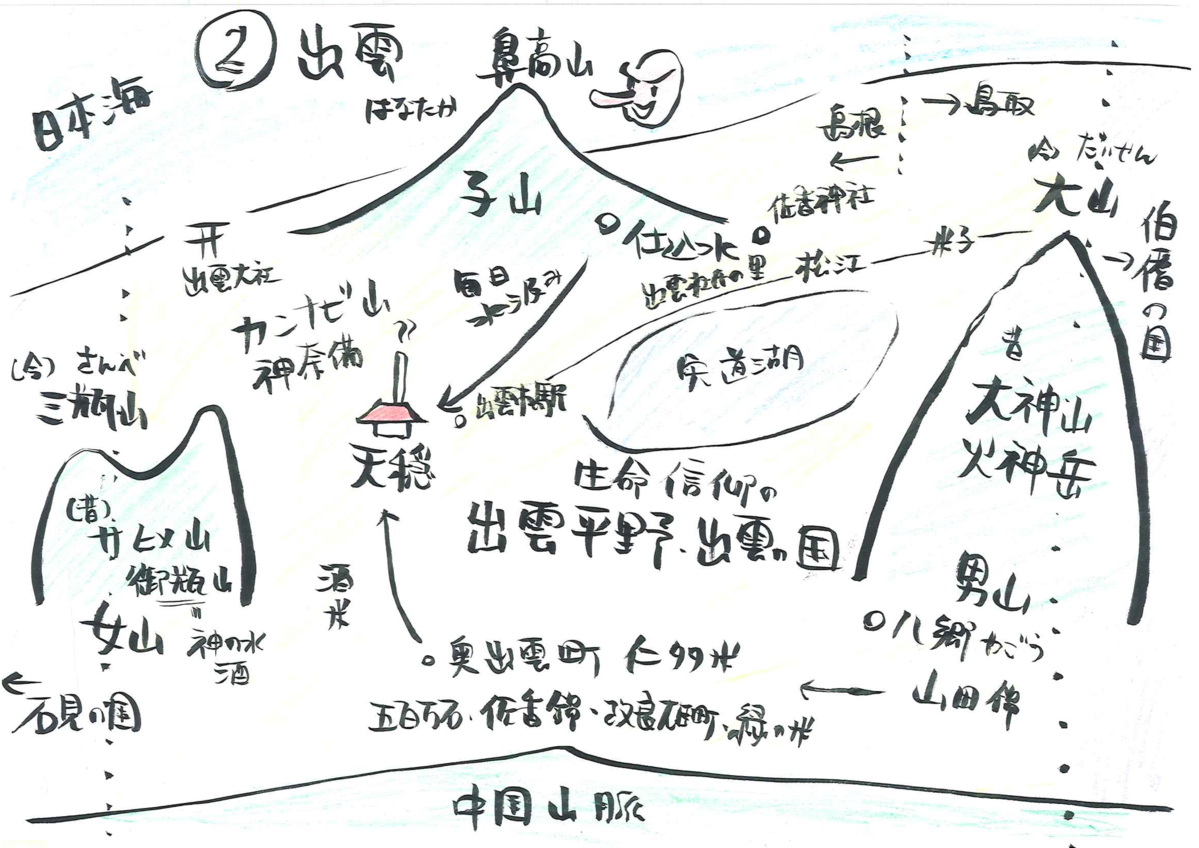 ② 出雲
鼻高山
はなたか
日本海
島根
←
→鳥取
(今) だいせん
大山
伯耆の国
→
子山
佐香神社
仕込つ水
出雲杜氏の里
松江
米子
出雲大社
カンナビ山
神奈備
毎日
水う汲み
宍道湖
出雲市駅
天穏
(今) さんべ
三瓶山
(昔)
サヒメ山
御瓶山
〃
神の水
酒
女山
←
石見の国
生命信仰の
出雲平野、出雲の国
昔
大神山
火神岳
男山
八郷 やごう
山田錦
←
酒米
奥出雲町 仁多米
五百万石・佐香錦・改良雄町・縁の米
中国山脈